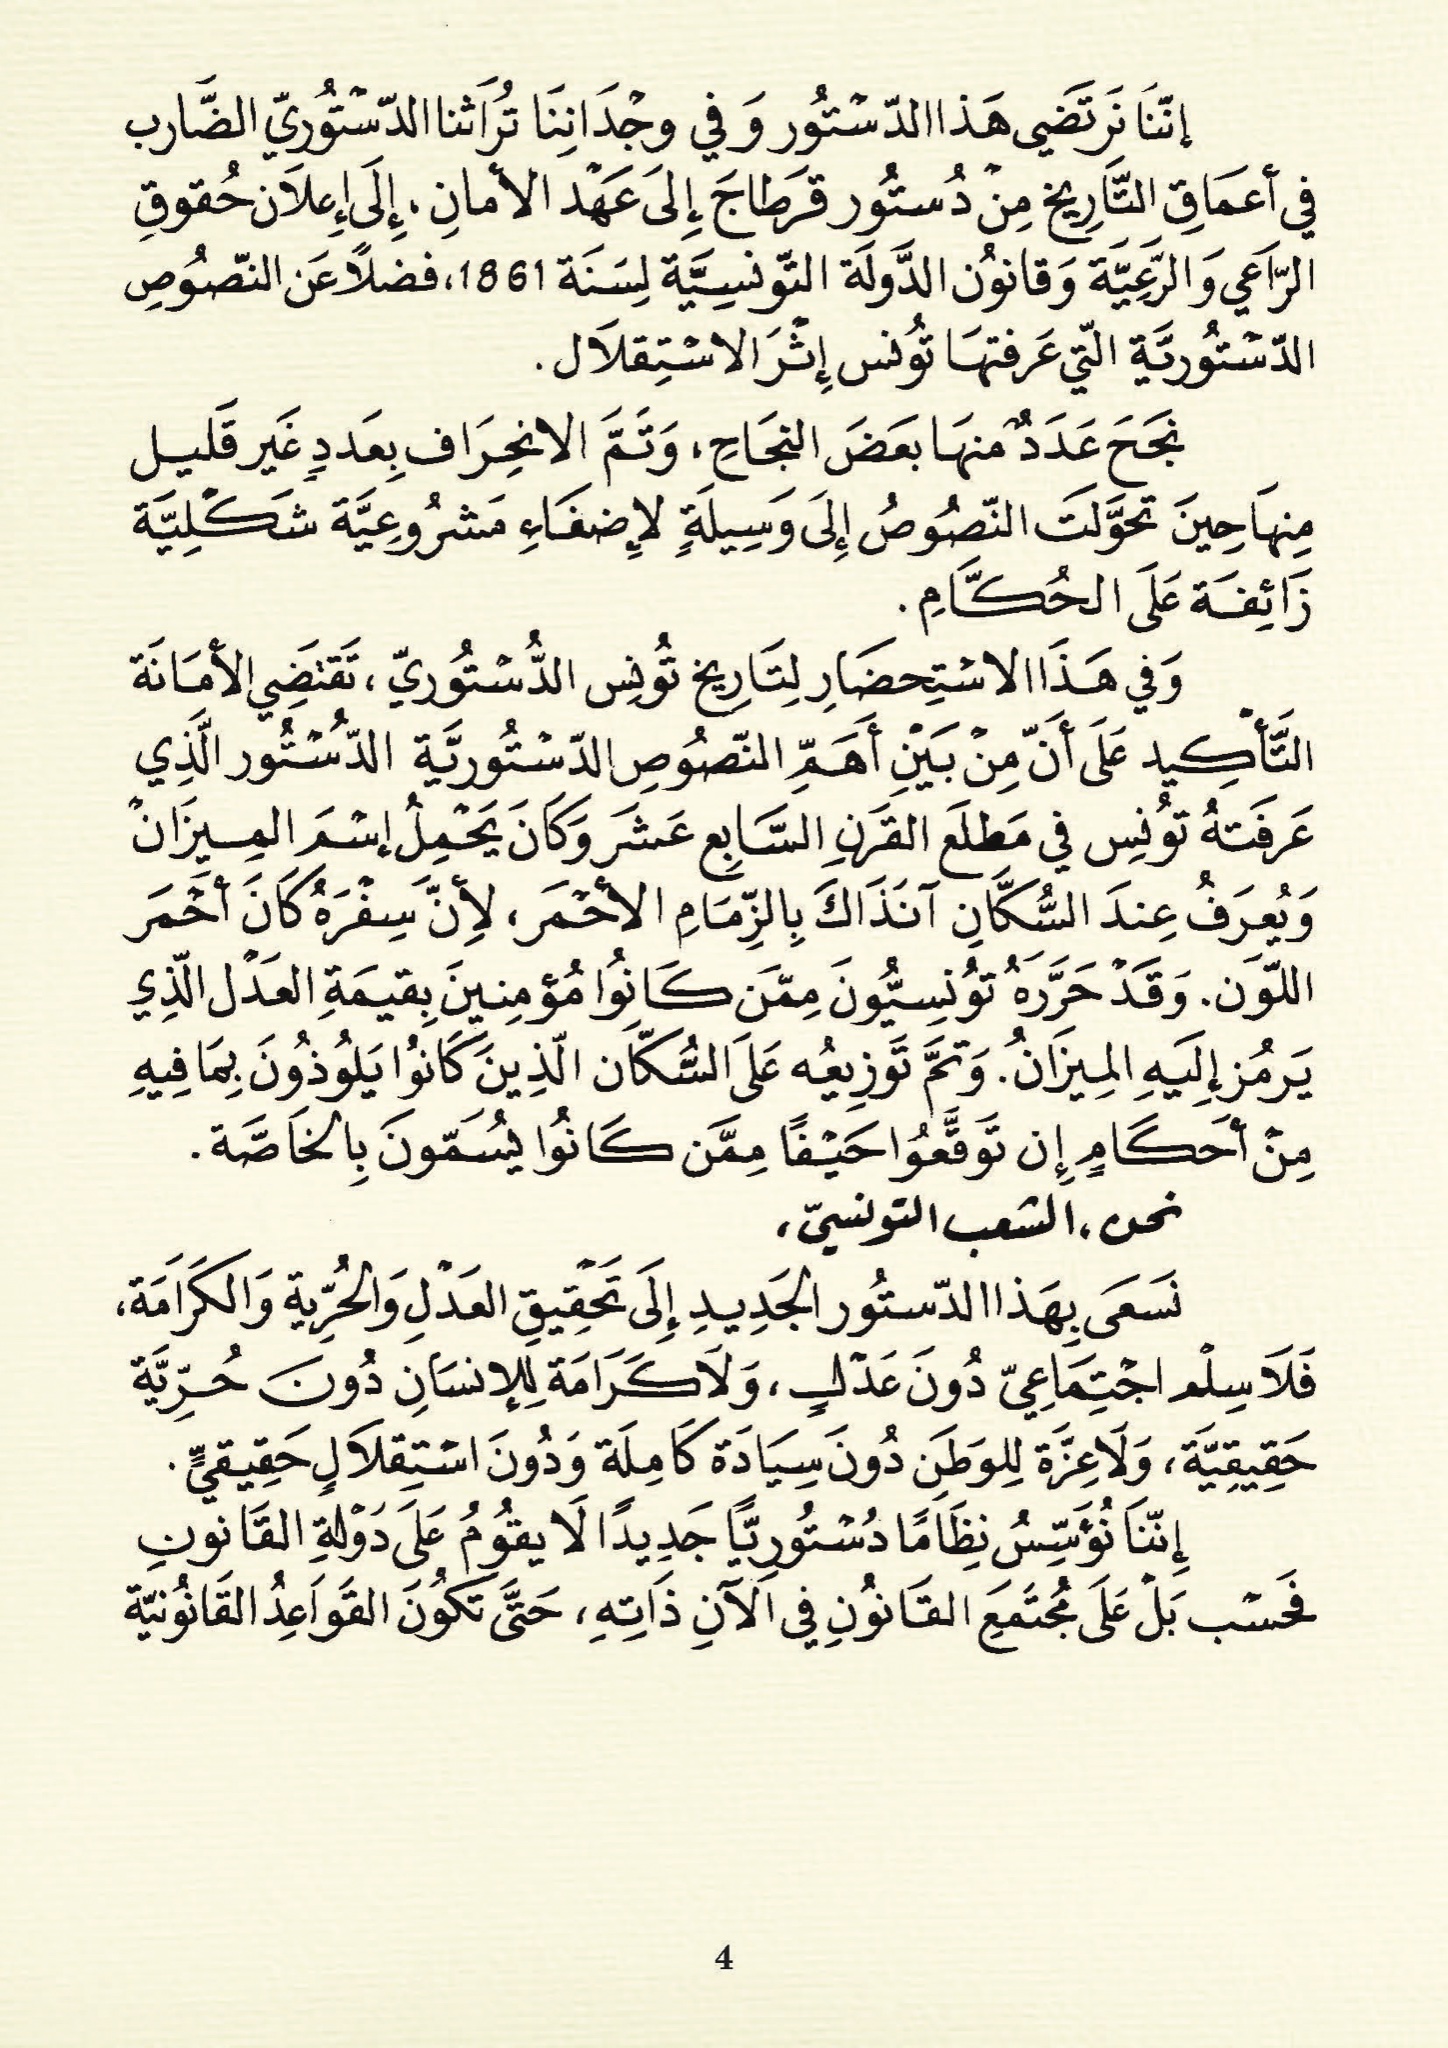 إنّنَا نَرتَضي هَذا الدّسْتُور وَفي وجْدَانِنَا تُرَاثنا الدّسْتُوريّ الضَّارب
في أعمَاقِ التَّارِيخ مِنْ دُستُور قرطاجَ إِلَى عَهْد الأمانِ، إِلَى إِعلاَن حُقوقِ
الرّاعَي وَالرَّعِيَّة وَقانوُن الدَّولَة التّونسِيَّة لِسَنَة 1861، فضلاً عَن النّصُوصِ
الدّسْتُوريَّةِ الّتي عَرفتهَا تُونس إِثْرَ الاسْتِقلاَل.
نجَحَ عَدَدٌ منهَا بعَضَ النجَاحِ، وَتَمَّ الانحِرَاف بِعَددٍ غَير قَليل
مِنهَا حِينَ تحَوَّلَت النّصُوصُ إِلَى وَسِيلَةٍ لإِضفَاءِ مَشرُوعِيَّة شَكْلِيَّة
زَائِفَة عَلَى الحُكَّامِ.
وَفي هَذَا الاسْتِحضَارِ لِتَارِيخ تُونِس الدُّسْتُوريّ، تَقتَضِي الأمَانَة
التَّأكِيد عَلَى أَنّ مِنْ بَيْنِ أَهَمِّ النّصُوصِ الدّسْتُوريَّة الدُّسْتُور الَّذِي
عَرفَتهُ توُنِس في مَطلَع القَرنِ السَّابِع عَشَر وَكَانَ يَحْمِلُ إسْمَ المِيزَانْ
وَيُعرَفُ عِندَ السُّكَّانِ آنَذَاكَ بِالزِّمَامِ الأحْمَر، لأِنَّ سِفْرَهُ كَانَ أحْمَر
اللّوَن. وَقَدْ حَرَّرَهُ توُنِسيُّونَ مِمّن كَانوُا مُؤمِنينَ بِقيمَةِ العَدْل الّذِي
يَرمُز إِلَيهِ المِيزَانُ. وَتمَّ تَوزِيعُه عَلَى السُّكّان الّذِينَ كَانوُا يَلُوذُونَ بِمَا فِيهِ
مِنْ أحَكَامٍ إِن تَوقَّعُوا حَيْفًا مِمَّن كَانوُا يُسَمّونَ بِالخَاصَّة.
نحن، الشعب التونسيّ،
نَسَعَى بِهَذا الدّستُور الجَدِيدِ إِلَى تَحْقِيقِ العَدْلِ وَالحُرِّيةِ وَالكَرَامَة،
فَلاَ سِلْم اجْتِمَاعِيّ دُونَ عَدْلٍ، وَلاَ كَرَامَة لِلإنسَانِ دُونَ حُرِّيَّة
حَقِيقِيَّة، وَلَا عِزَّة لِلوَطَنِ دُونَ سِيَادَة كَامِلَة وَدُونَ اسْتِقلاَلٍ حَقِيقيٍّ.
إِنّنَا نُؤَسِّسُ نِظَامًا دُسْتُورِيًّا جَدِيدًا لَا يقوُمُ عَلَى دَوْلةِ القَانونِ
فَحَسْب بَلْ عَلَى مُجتَمَعِ القَانوُنِ في الآنِ ذَاتِهِ، حَتَّى تَكوُنَ القَوَاعِدُ القَانوُنيّة
4